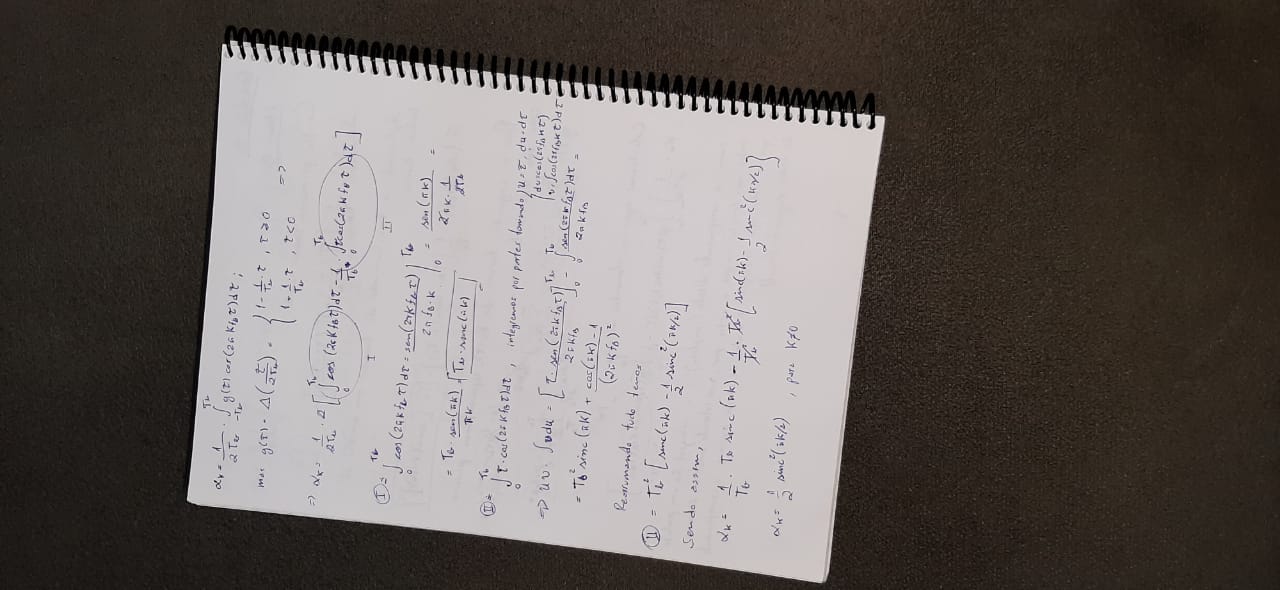 αₖ = 1/(2T_b) · ∫_{-T_b}^{T_b} g(τ) cos(2πk f_B τ) dτ ;
mas g(τ) = Δ(τ/(2T_b)) = { 1 - 1/T_b · τ , τ ≥ 0
1 + 1/T_b · τ , τ < 0 =>
=> αₖ = 1/(2T_b) · 2 [ ∫_0^{T_b} cos(2πk f_B τ) dτ - 1/T_b · ∫_0^{T_b} τ cos(2πk f_B τ) dτ ]
I II
I = ∫_0^{T_b} cos(2πk f_B τ) dτ = sen(2πk f_B τ)/(2π f_B · k) |_0^{T_b} = sen(πk)/(2πk · 1/(2T_b)) =
= T_b · sen(πk)/(πk) = T_b · sinc(πk)
II = ∫_0^{T_b} τ · cos(2πk f_B τ) dτ , integramos por partes tomando { u = τ, du = dτ
dv = cos(2π f_B k τ)
v = ∫ cos(2π f_B k τ) dτ
=> uv - ∫ v du = [ τ · sen(2πk f_B τ)/(2πk f_B) ]_0^{T_b} - ∫_0^{T_b} sen(2πk f_B τ)/(2πk f_B) dτ =
= T_b² sinc(πk) + (cos(πk) - 1)/(2πk f_B)²
tudo temos
II = T_b² [ sinc(πk) - 1/2 sinc²(πk/2) ]
Sendo assim,
αₖ = 1/T_b · T_b sinc(πk) - 1/T_b² · T_b² [ sinc(πk) - 1/2 sinc²(kπ/2) ] }
αₖ = 1/2 sinc²(πk/2) , para k≠0